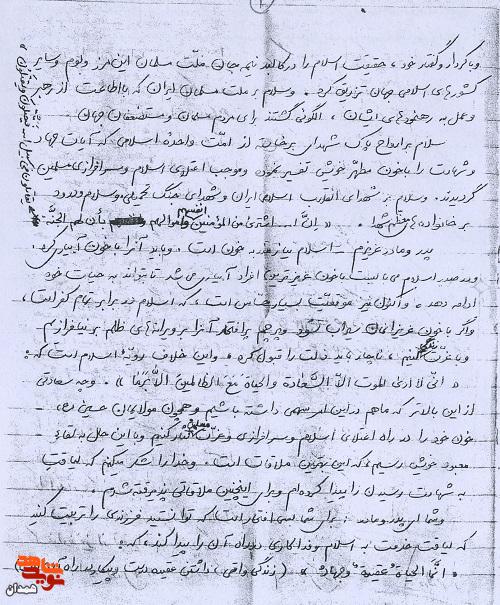 و با کردار و گفتار خود، حقیقت اسلام را در کالبد نیمه جان ملت مسلمان این مرز و بوم و سایر
کشورهای اسلامی جهان تزریق کرد. وسلام بر ملت مسلمان ایران که با اطاعت از رهبر
وعمل به رهنمودهای ایشان، الگوئی گشتند برای مردم مسلمان و مستضعفان جهان.
سلام بر ارواح پاک شهدای برخاسته از امت واحدهٔ اسلامی که آیات جهاد
وشهادت را با خون مطهر خویش تفسیر نمودند وموجب اعتلای اسلام وسرافرازی مسلمین
گردیدند. وسلام بر شهدای انقلاب اسلامی ایران وشهدای جنگ تحمیلی وسلام ودرود
بر خانواده های معظم شهدا. « ان الله اشتری من المؤمنین انفسهم واموالهم بأن لهم الجنّة»
پدر ومادر عزیزم - اسلام نیازمند به خون است. وباید آنرا با خون آبیاری کرد.
ودر صدر اسلام می بایست با خون عزیزترین افراد آبیاری می شد تا بتواند به حیات خود
ادامه دهد. واکنون نیز موقعیت بسیار حساس است، که اسلام در برابر تمام کفر است،
واگر با خون عزیزانمان سیراب نشود وپرچم پرافتخار آنرا بر ویرانه های ظلم برنیفرازیم
وبا عزت زندگی نکنیم، ناچار باید ذلت را قبول کرد. واین خلاف رویهٔ اسلام است که:
« انّی لا اری الموت الاّ السّعادة والحیاة مَعَ الظالمین الاّ بَرَما ». وچه سعادتی
از این بالاتر که ما هم در این امر سهمی داشته باشیم وهمچون مولایمان حسین (ع)
خون خود را در راه اعتلای اسلام وسرافرازی وعزّت مسلمین نثار کنیم وبا این حال به لقاء
معبود خویش برسیم، که این بهترین ملاقات است. وخدا را شکر میکنم که لیاقت
به شهادت رسیدن را پیدا کرده ام وبرای اینچنین ملاقاتی پذیرفته شدم.
وشما ای پدر ومادر: برای شما بسی افتخار است که توانستید فرزندی را تربیت کنید
که لیاقت خدمت به اسلام وفداکاری در راه آن را پیدا کند، که:
« انّما الحیاة عقیدة وجهاد ». (زندگی واقعی، داشتن عقیده درست وپیکار در راه آن
نوید شاهد
همدان